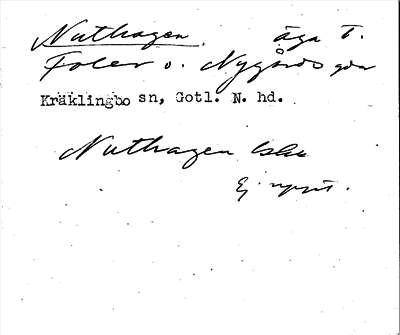 Nuthagen. äga t.
Foler o. Nygårds gdr
Kräklingbo sn, Gotl. N. hd.
Nuthagen
Ej uppt.